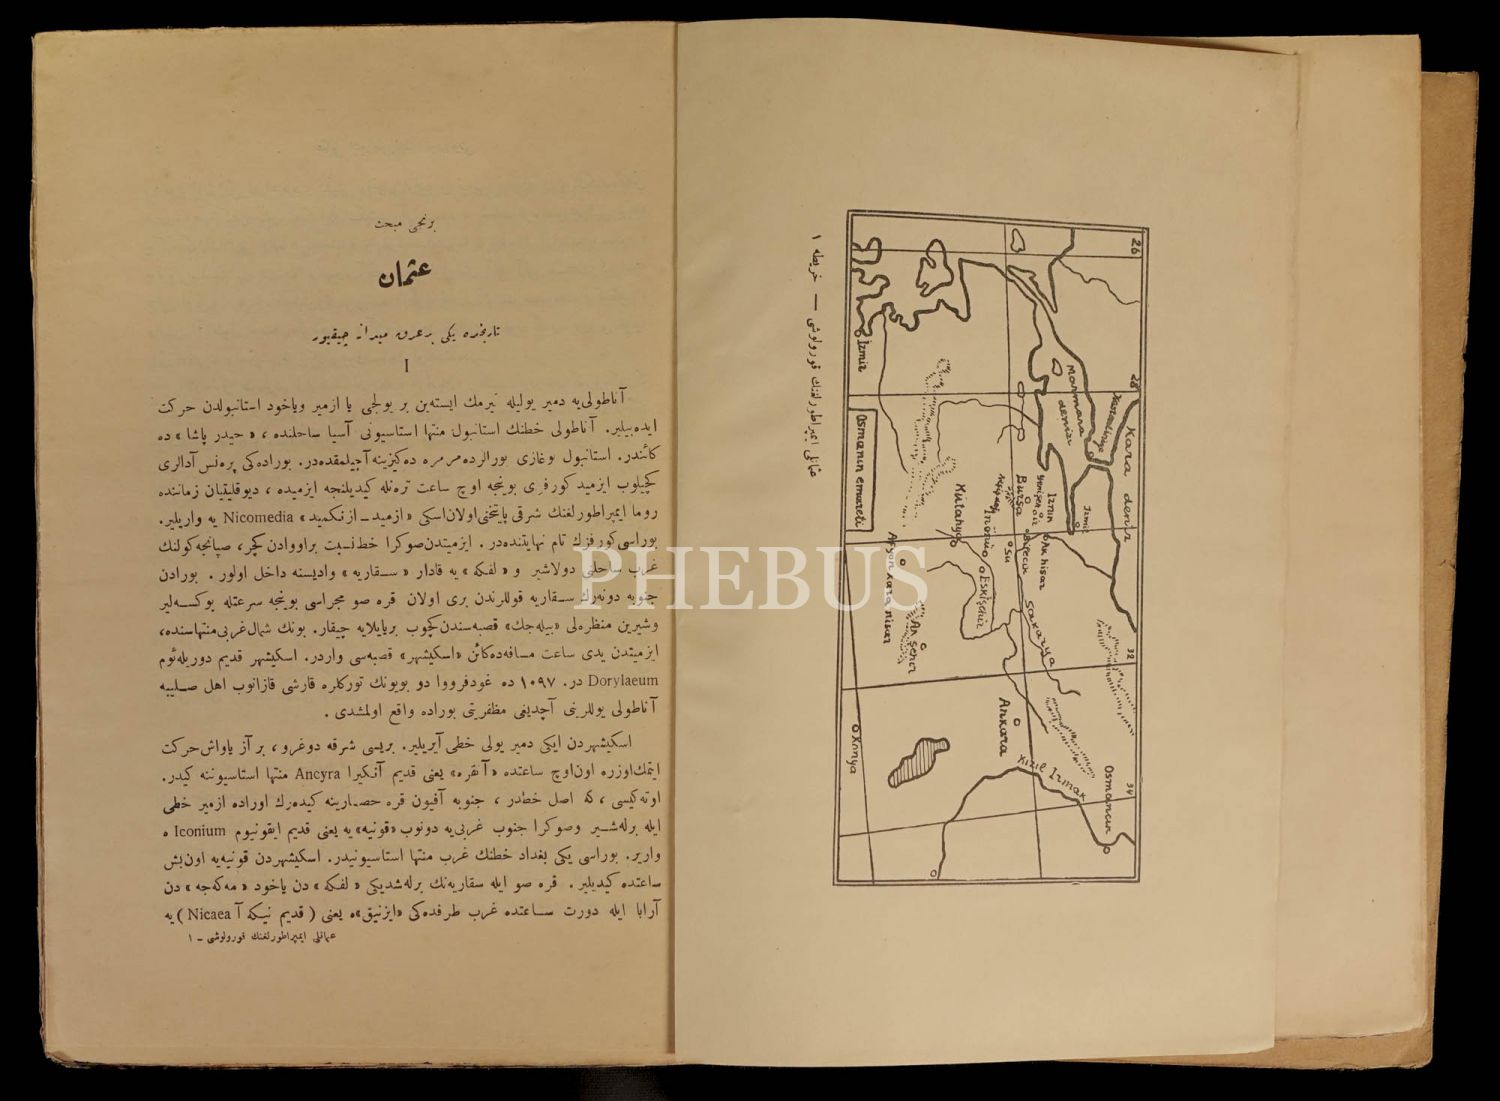 برنجی مبحث
عثمان
تاریخده یكی بر عرق میدانه چیقیور
I
آناطولی‌یه دمیر یولیله كیرمك ایسته‌ین بر یولجی یا ازمیر ویاخود استانبولدن حركت
ایده‌بیلیر. آناطولی خطنك استانبول منتها استاسیونی آسیا ساحلنده ، «حیدر پاشا» ده
كائندر. استانبول بوغازی بورالرده مرمره ده‌كیزینه آچیلمقده‌در. بوراده‌كی پره‌نس آدالری
كچیلوب ایزمید كورفزی بوینجه اوچ ساعت ترەنله كیدیلنجه ایزمیده ، دیوقلیقیان زماننده
روما ایمپراطورلغنك شرقی پایتختی اولان اسكی «ازمید ـ ازنكمید» Nicomedia یه واریلیر.
بوراسی كورفزك تام نهایتنده‌در. ایزمیتدن صوكرا خط نسبت براووادن كچر، صپانجه كولنك
غرب ساحلنی دولاشیر و «لفكه» یه قادار «سقاریه» وادیسنه داخل اولور . بورادن
جنوبه دونه‌رك سقاریه قوللرندن بری اولان قره صو مجراسی بوینجه سرعتله یوكسه‌لیر
وشیرین منظره‌لی «بیله‌جك» قصبه‌سندن كچوب بریایلایه چیقار. بونك شمال غربی منتهاسنده،
ایزمیتدن یدی ساعت مسافه‌ده كائن «اسكیشهر» قصبه‌سی واردر. اسكیشهر قدیم دوریله‌ئوم
Dorylaeum در. ۱۰۹۷ ده غودفرووا دو بویونك توركلره قارشی قازانوب اهل صلیبه
آناطولی یوللرینی آچدیغی مظفریتی بوراده واقع اولمشدی .
اسكیشهردن ایكی دمیر یولی خطی آیریلیر. بریسی شرقه دوغرو ، بر آز یاواش حركت
ایتمك اوزره اون اوچ ساعتده «آنقره» یعنی قدیم آنكیرا Ancyra منتها استاسیوننه كیدر.
اوته‌كیسی ، كه اصل خطدر ، جنوبه آفیون قره حصارینه كیده‌رك اوراده ازمیر خطی
ایله برله‌شیر وصوكرا جنوب غربی‌یه دونوب «قونیه» یه یعنی قدیم ایقونیوم Iconium ه
واریر. بوراسی یكی بغداد خطنك غرب منتها استاسیونیدر. اسكیشهردن قونیه‌یه اون بش
ساعتده كیدیلیر . قره صو ایله سقاریه‌نك برله‌شدیكی «لفكه» دن یاخود «مه‌كه‌جه» دن
آرابا ایله دورت ساعتده غرب طرفده‌كی «ایزنیق»ه یعنی ( قدیم نیكه آ Nicaea ) یه
عثمانلی ایمپراطورلغنك قورولوشی ـ ۱
خریطه ۱ — عثمانلی ایمپراطورلغنك قورولوشی
26
28
32
34
Kara deniz
Marmara
denizi
İzmit
İznik
Yenişehir
Bursa
Ak hisar
Bilecik
Su
İnönü
Eskişehir
Sakarya
Kütahya
Afyon Kara hisar
Akşehir
Ankara
Kızıl Irmak
Osmancık
Konya
İzmir
Osmanın emareti
PHEBUS